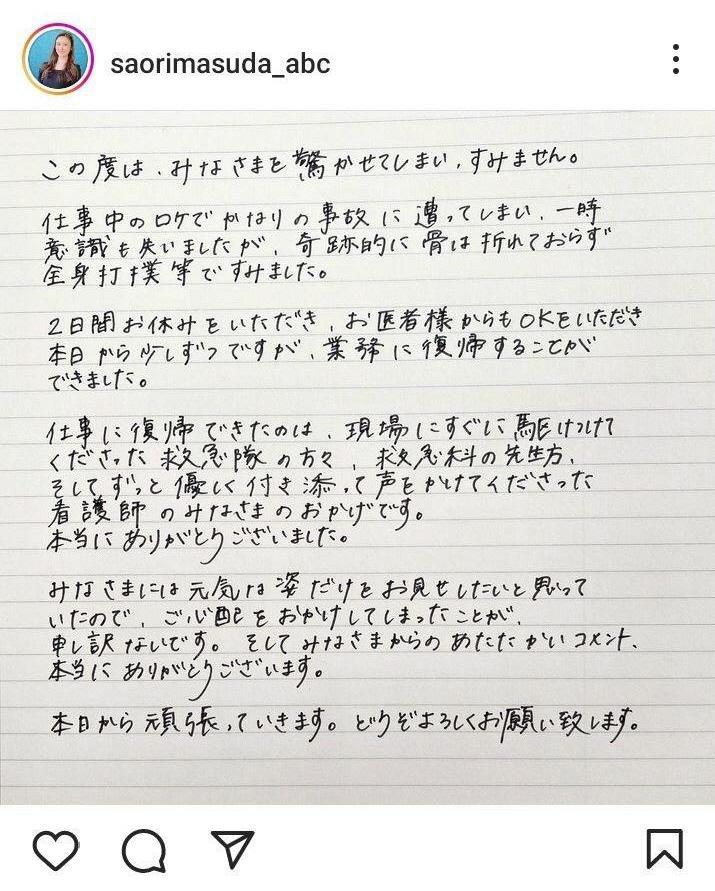 saorimasuda_abc
この度は、みなさまを驚かせてしまい、すみません。
仕事中のロケでかなりの事故に遭ってしまい、一時
意識も失いましたが、奇跡的に骨は折れておらず
全身打撲等ですみました。
2日間お休みをいただき、お医者様からもOKをいただき
本日から少しずつですが、業務に復帰することが
できました。
仕事に復帰できたのは、現場にすぐに駆けつけて
くださった救急隊の方々、救急科の先生方、
そしてずっと優しく付き添って声をかけてくださった
看護師のみなさまのおかげです。
本当にありがとうございました。
みなさまには元気な姿だけをお見せしたいと思って
いたので、ご心配をおかけしてしまったことが、
申し訳ないです。そしてみなさまからのあたたかいコメント、
本当にありがとうございます。
本日から頑張っていきます。どうぞよろしくお願い致します。